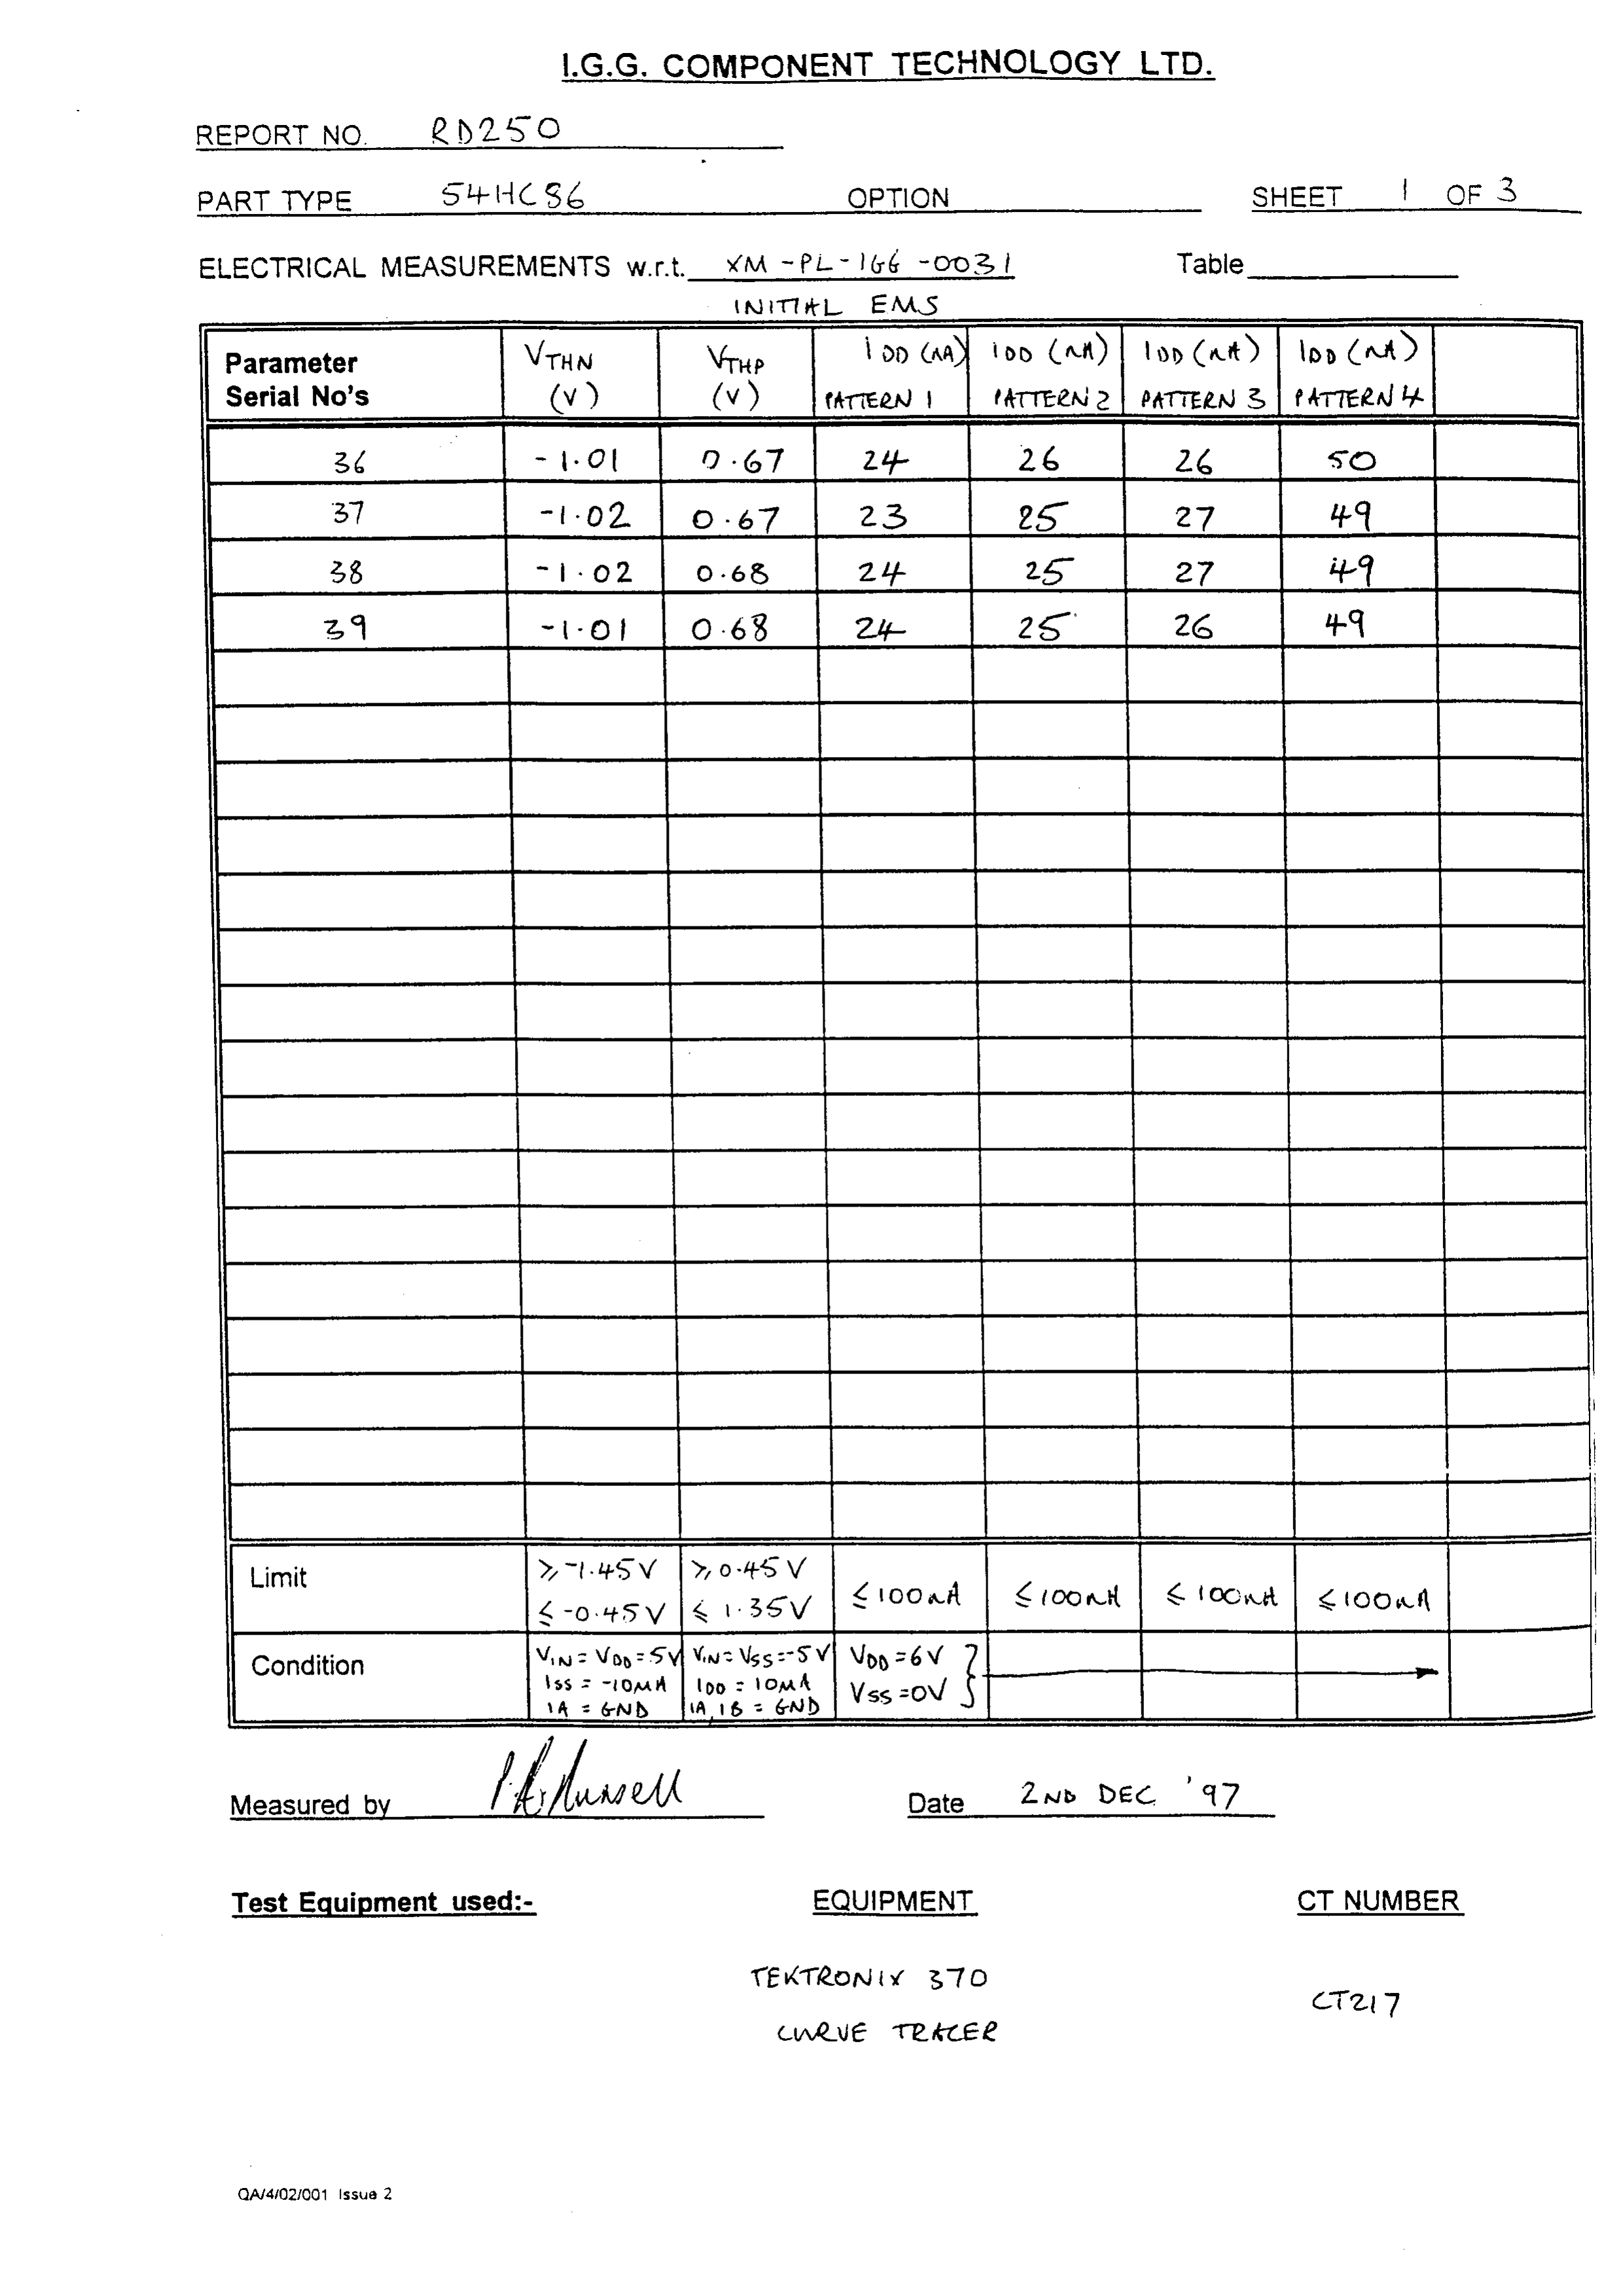 I.G.G. COMPONENT TECHNOLOGY LTD.
REPORT NO. RD250
PART TYPE 54HC86 OPTION SHEET 1 OF 3
ELECTRICAL MEASUREMENTS w.r.t. XM-PL-IGG-0031 Table
INITIAL EMS
Parameter Serial No's VTHN (V) VTHP (V) IDD (nA) PATTERN 1 IDD (nA) PATTERN 2 IDD (nA) PATTERN 3 IDD (nA) PATTERN 4
36 -1.01 0.67 24 26 26 50
37 -1.02 0.67 23 25 27 49
38 -1.02 0.68 24 25 27 49
39 -1.01 0.68 24 25 26 49
Limit ≥-1.45V ≤-0.45V ≥0.45V ≤1.35V ≤100nA ≤100nA ≤100nA ≤100nA
Condition VIN = VDD = 5V ISS = -10μA 1A = GND VIN = VSS = -5V IDD = 10μA 1A, 1B = GND VDD = 6V VSS = 0V
Measured by P. Russell Date 2ND DEC '97
Test Equipment used:- EQUIPMENT CT NUMBER
TEKTRONIX 370
CT217
CURVE TRACER
QA/4/02/001 Issue 2